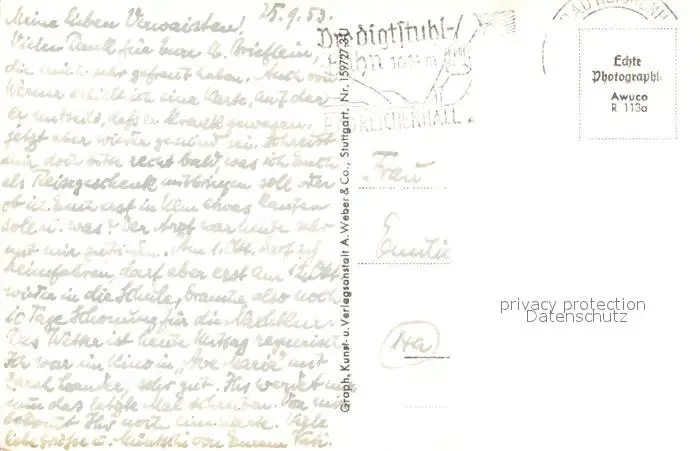 25.9.53.
Meine lieben Verwaisten!
Vielen Dank für Eure lb. Brieflein,
die mich sehr gefreut haben. Auch von
Werner erhielt ich eine Karte, auf der
er mitteilt, daß er krank gewesen,
jetzt aber wieder gesund sei. Schreibt
mir doch bitte recht bald, was ich Euch
als Reisegeschenk mitbringen soll oder
ob ich Euch erst in Ulm etwas kaufen
soll u. was? Der Arzt war heute sehr
mit mir zufrieden. Am 1. Okt. darf ich
heimfahren, darf aber erst am 12. Okt.
wieder in die Schule, brauche also noch
10 Tage Schonung für die Nachkur.
Das Wetter ist heute
Ich war im Kino in „Ave Maria" mit
Zarah Leander, sehr gut. Ihr werdet mir
nun das letzte Mal schreiben. Von mir
bekommt Ihr noch eine Karte. Viele
liebe Grüße u. von Eurem Vati.
Predigtstuhl-
Bahn 1614 m
BAD REICHENHALL
BAD REICHENH
Graph. Kunst- u. Verlagsanstalt A. Weber & Co., Stuttgart. Nr. 159727 3U
Echte
Photographie
Awuco
R 113a
Frau
Emilie
Ha
privacy protection
Datenschutz